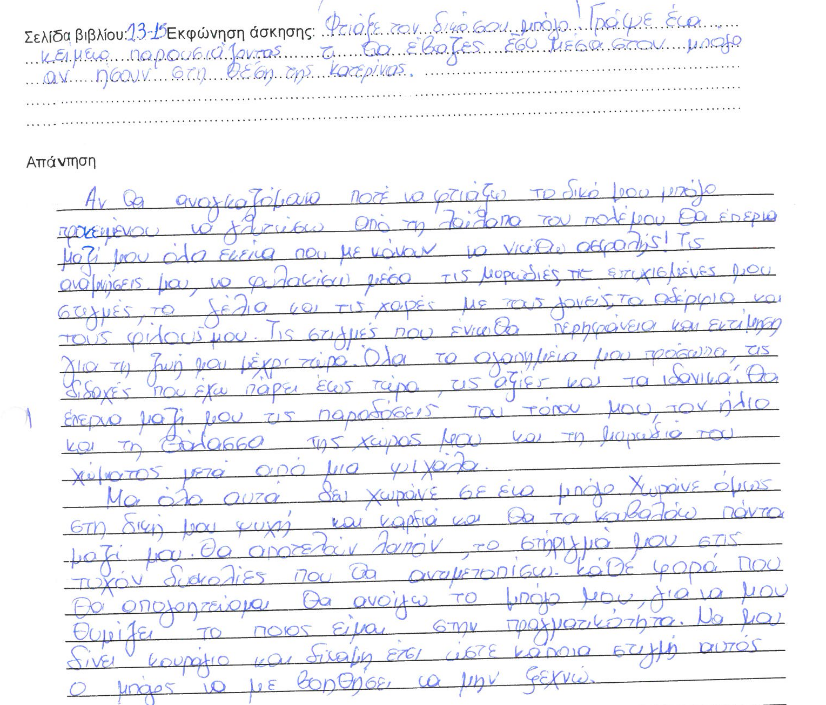 Σελίδα βιβλίου: 13-15 Εκφώνηση άσκησης: Φτιάξε τον δικό σου μπόγο! Γράψε ένα
κείμενο παρουσιάζοντας τι θα έβαζες εσύ μέσα στον μπόγο
αν ήσουν στη θέση της Κατερίνας.
Απάντηση
Αν θα αναγκαζόμουν ποτέ να φτιάξω το δικό μου μπόγο
προκειμένου να γλιτώσω από τη λαίλαπα του πολέμου θα έπερνα
μαζί μου όλα εκείνα που με κάναν να νιώθω ασφαλής! Τις
αναμνήσεις μου, να φυλακίσω μέσα τις μυρωδιές, τις ευτυχισμένες μου
στιγμές, το γέλια και τις χαρές με τους γονείς, τα αδέρφια και
τους φίλους μου. Τις στιγμές που ένιωθα περηφάνεια και εκτίμηση
για τη ζωή μου μέχρι τώρα. Όλα τα αγαπημένα μου πρόσωπα, τις
διδαχές που έχω πάρει έως τώρα, τις αξίες και τα ιδανικά! Θα
έπερνα μαζί μου τις παραδόσεις του τόπου μου, τον ήλιο
και τη θάλασσα της χώρας μου και τη μυρωδιά του
χώματος μετά από μια ψιχάλα.
Μα όλα αυτά δεν χωράνε σε ένα μπόγο. Χωράνε όμως
στη δική μου ψυχή και καρδιά και θα τα κουβαλάω πάντα
μαζί μου. Θα αποτελούν λοιπόν, το στήριγμά μου στις
τυχόν δυσκολίες που θα αντιμετοπίσω. Κάθε φορά που
θα απογοητεύομαι θα ανοίγω το μπόγο μου, για να μου
θυμίζει το ποιος είμαι στην πραγματικότητα. Να μου
δίνει κουράγιο και δύναμη έτσι ώστε κάποια στιγμή αυτός
ο μπόγος να με βοηθήσει να μην ξεχνώ.